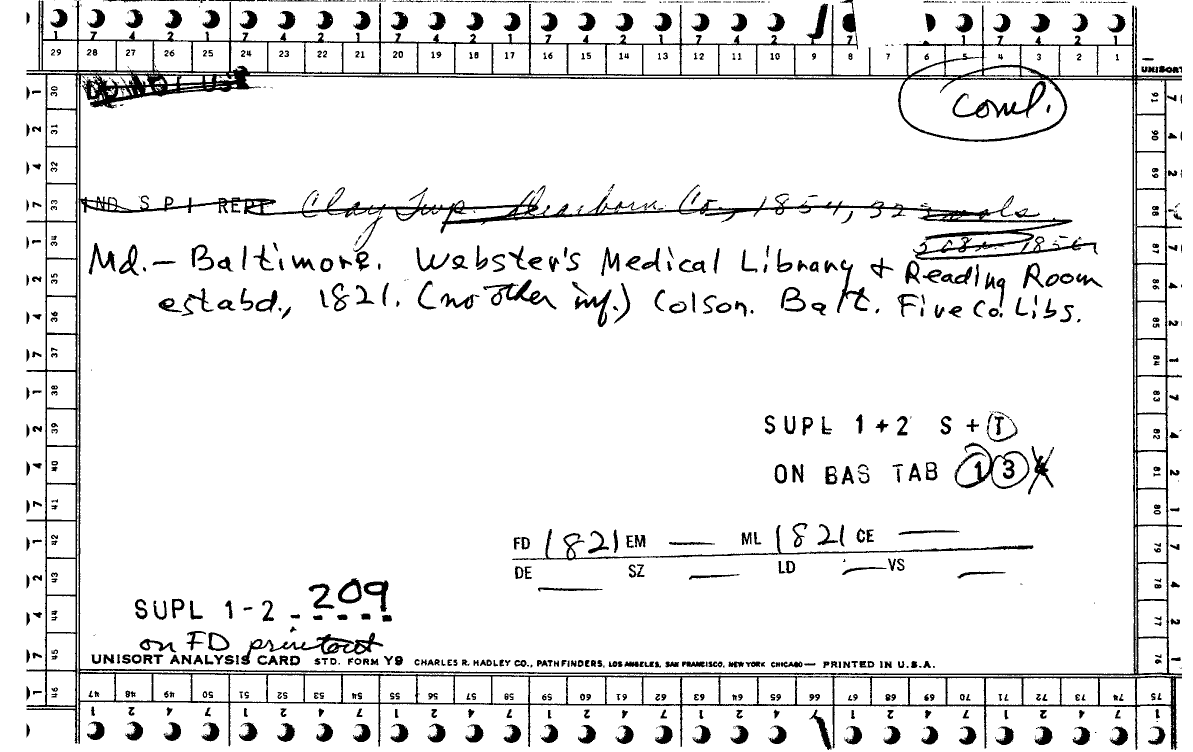 1 7 4 2 1 7 4 2 1 7 4 2 1 7 4 2 1 7 4 2 1 7 1 7 4 2 1
29 28 27 26 25 24 23 22 21 20 19 18 17 16 15 14 13 12 11 10 9 8 7 6 5 4 3 2 1
UNISORT
DO NOT USE
Coml.
IND S P I REPT Clay Twp. Dearborn Co., 1854, 323 vols.
308 1856
Md. — Baltimore. Webster's Medical Library + Reading Room
estabd., 1821. (no other inf.) Colson. Balt. Five Co. Libs.
SUPL 1+2 S+T
ON BAS TAB 1 3 4
FD 1821 EM — ML 1821 CE —
DE — SZ — LD — VS —
SUPL 1-2 209
on FD printout
UNISORT ANALYSIS CARD STD. FORM Y9 CHARLES R. HADLEY CO., PATHFINDERS, LOS ANGELES, SAN FRANCISCO, NEW YORK CHICAGO — PRINTED IN U.S.A.
30 31 32 33 34 35 36 37 38 39 40 41 42 43 44 45 46
91 90 89 88 87 86 85 84 83 82 81 80 79 78 77 76
47 48 49 50 51 52 53 54 55 56 57 58 59 60 61 62 63 64 65 66 67 68 69 70 71 72 73 74 75